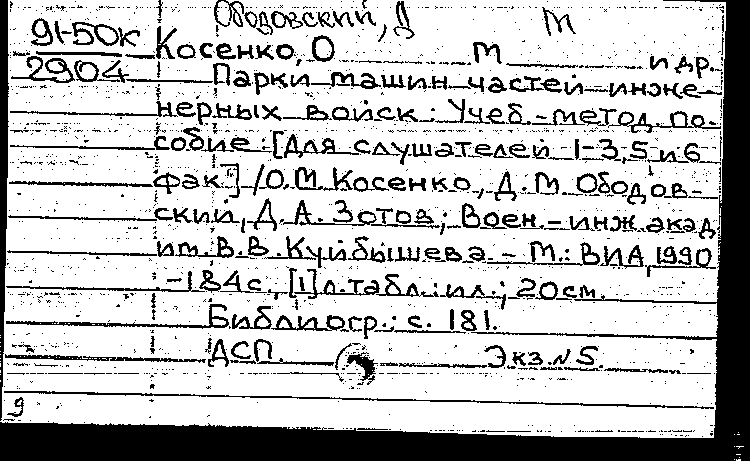 Ободовский, Д М
91-50к
2904
Косенко, О М и др.
Парки машин частей инже-
нерных войск : Учеб.-метод. по-
собие : [Для слушателей 1-3,5 и 6
фак.] / О.М. Косенко, Д.М. Ободов-
ский, Д.А. Зотов ; Воен.-инж. акад.
им. В.В. Куйбышева. - М.: ВИА, 1990
-184с., [1] л. табл. : ил. ; 20см.
Библиогр.: с. 181.
ДСП. Экз. N 5.
9